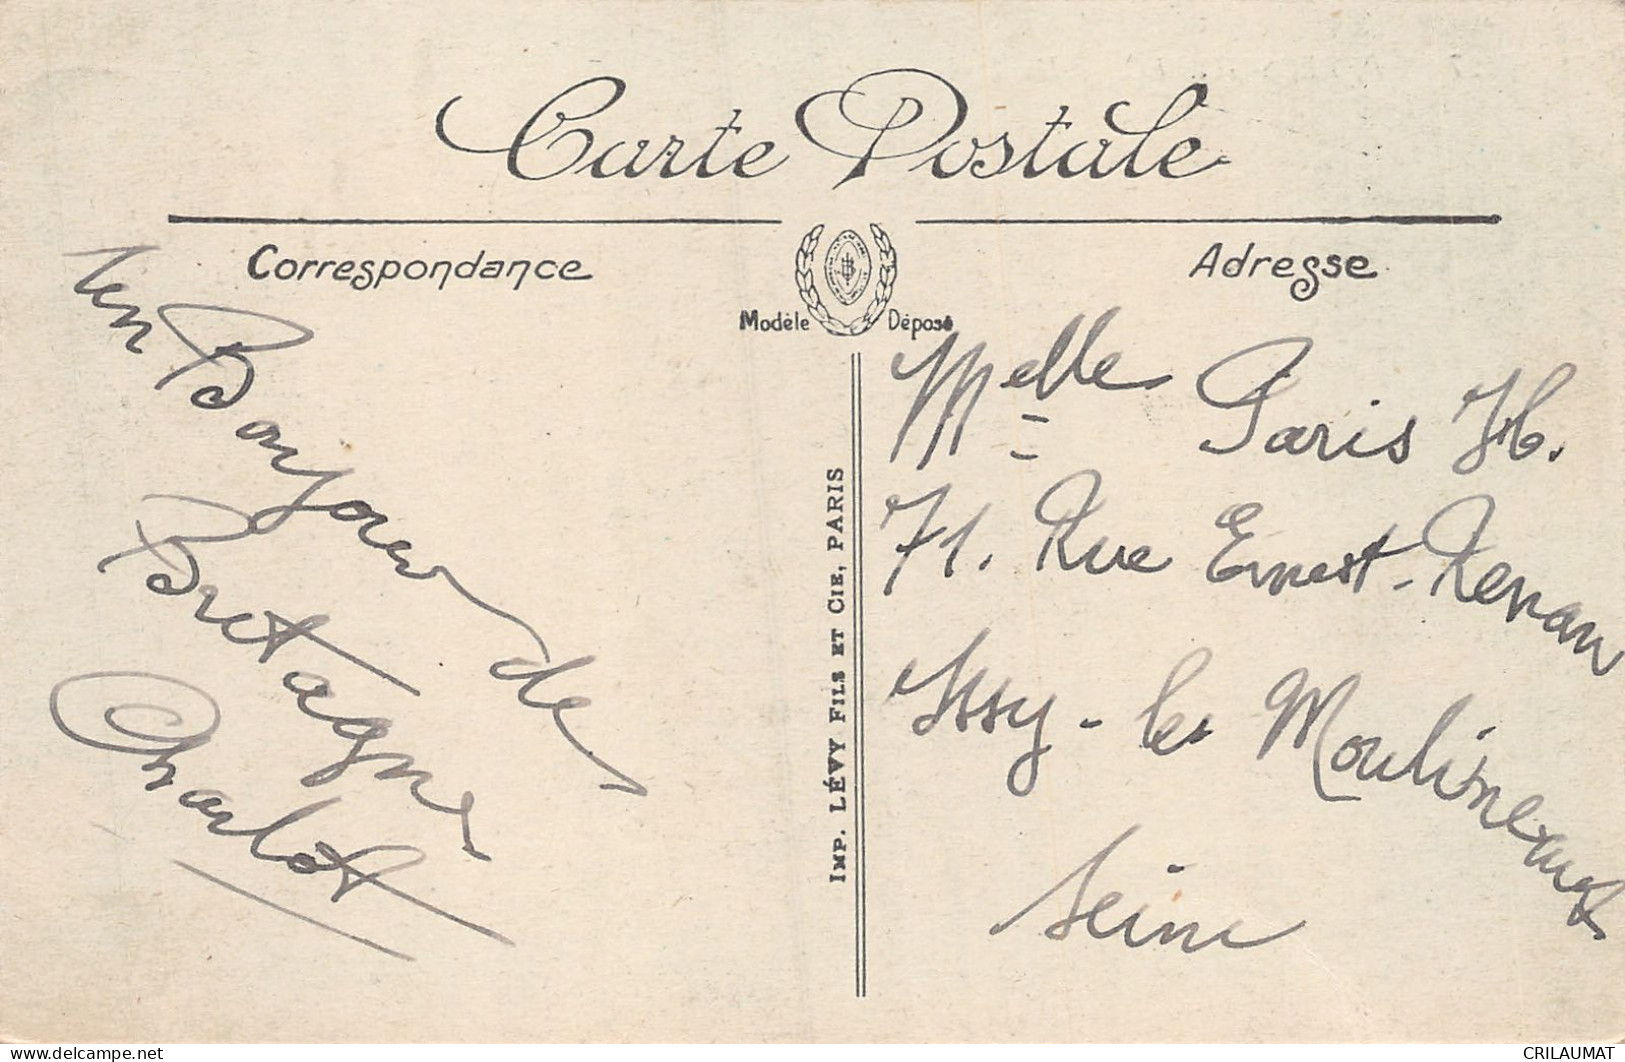 Carte Postale
Correspondance
Adresse
Modèle Déposé
Un Bonjour de
Bretagne
Charlot
IMP. LÉVY FILS ET CIE, PARIS
Melle Paris H.
71. Rue Ernest-Renan
Issy-les Moulineaux
Seine
delcampe.net
CRILAUMAT